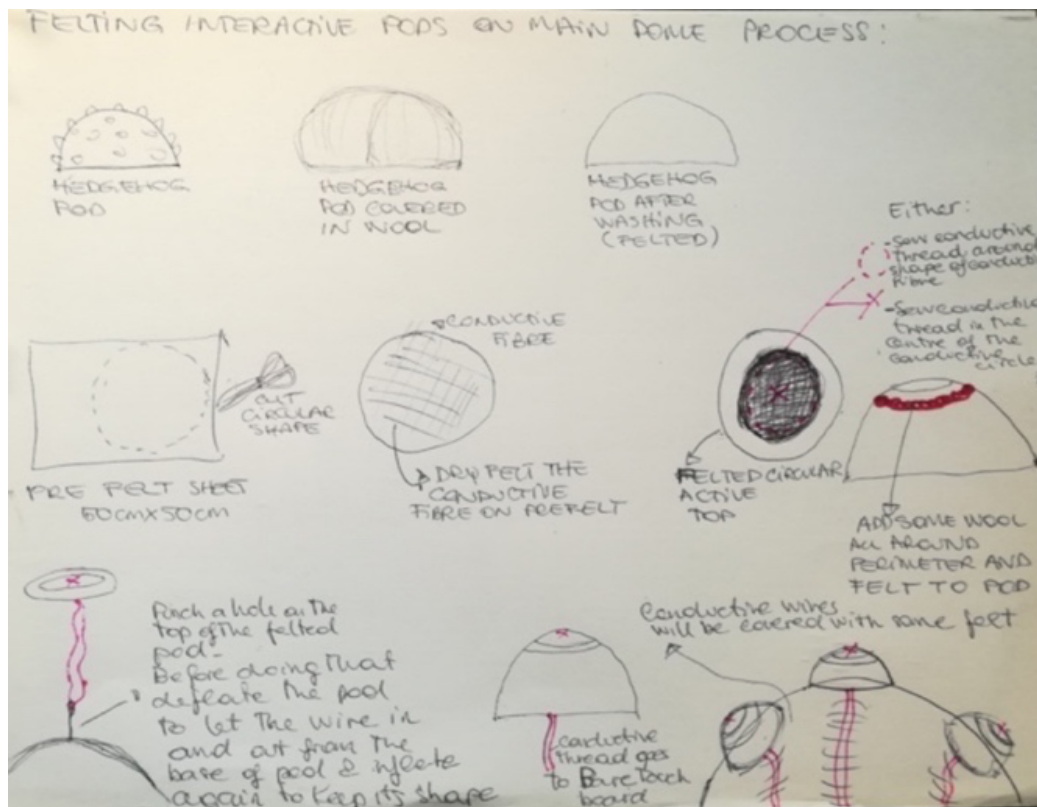 FELTING INTERACTIVE PODS ON MAIN DOME PROCESS:
HEDGEHOG
POD
HEDGEHOG
POD COVERED
IN WOOL
HEDGEHOG
POD AFTER
WASHING
(FELTED)
Either:
-Sew conductive
thread around
shape of conductive
fibre
-Sew conductive
thread in the
centre of the
conductive
circle
CUT
CIRCULAR
SHAPE
PRE FELT SHEET
50cm X 50cm
CONDUCTIVE
FIBRE
DRY FELT THE
CONDUCTIVE
FIBRE ON PREFELT
FELTED CIRCULAR
ACTIVE
TOP
ADD SOME WOOL
ALL AROUND
PERIMETER AND
FELT TO POD
Punch a hole on the
top of the felted
pod-
Before doing that
defleate the pod
to let the wire in
and out from the
base of pod & inflate
again to keep its shape
conductive
thread goes
to Bare Touch
board
Conductive wires
will be covered with some felt